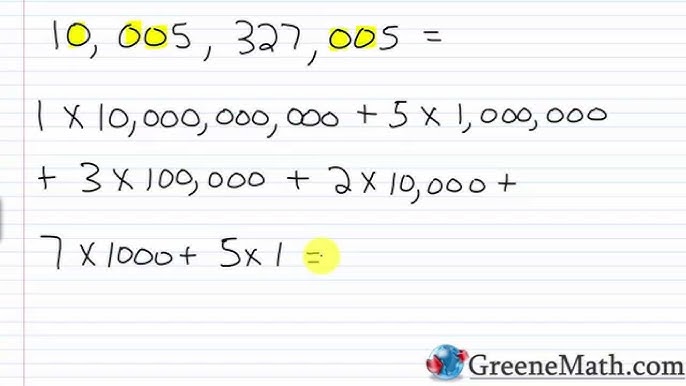 10,005,327,005 =
1 x 10,000,000,000 + 5 x 1,000,000
+ 3 x 100,000 + 2 x 10,000 +
7 x 1000 + 5 x 1 =
GreeneMath.com